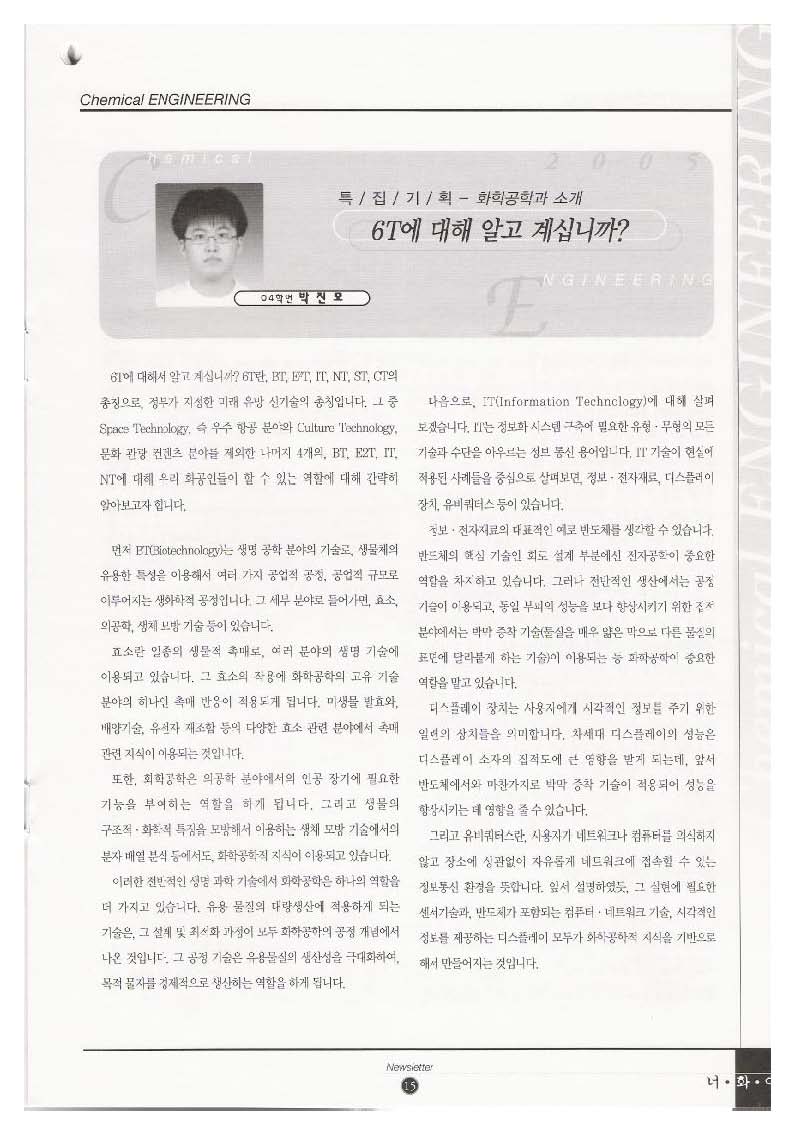 Chemical ENGINEERING
hemical
C
2 0 0 5
특 / 집 / 기 / 획 - 화학공학과 소개
6T에 대해 알고 계십니까?
NGINEERING
E
04학번 박 진 모
6T에 대해서 알고 계십니까? 6T란, BT, E²T, IT, NT, ST, CT의
총칭으로, 정부가 지정한 미래 유망 신기술의 총칭입니다. 그 중
Space Technology, 즉 우주 항공 분야와 Culture Technology,
문화 관광 컨텐츠 분야를 제외한 나머지 4개의, BT, E2T, IT,
NT에 대해 우리 화공인들이 할 수 있는 역할에 대해 간략히
알아보고자 합니다.
먼저 BT(Biotechnology)는 생명 공학 분야의 기술로, 생물체의
유용한 특성을 이용해서 여러 가지 공업적 공정, 공업적 규모로
이루어지는 생화학적 공정입니다. 그 세부 분야로 들어가면, 효소,
의공학, 생체 모방 기술 등이 있습니다.
효소란 일종의 생물적 촉매로, 여러 분야의 생명 기술에
이용되고 있습니다. 그 효소의 작용에 화학공학의 고유 기술
분야의 하나인 촉매 반응이 적용되게 됩니다. 미생물 발효와,
배양기술, 유전자 재조합 등의 다양한 효소 관련 분야에서 촉매
관련 지식이 이용되는 것입니다.
또한, 화학공학은 의공학 분야에서의 인공 장기에 필요한
기능을 부여하는 역할을 하게 됩니다. 그리고 생물의
구조적·화학적 특징을 모방해서 이용하는 생체 모방 기술에서의
분자 배열 분석 등에서도, 화학공학적 지식이 이용되고 있습니다.
이러한 전반적인 생명 과학 기술에서 화학공학은 하나의 역할을
더 가지고 있습니다. 유용 물질의 대량생산에 적용하게 되는
기술은, 그 설계 및 최적화 과정이 모두 화학공학의 공정 개념에서
나온 것입니다. 그 공정 기술은 유용물질의 생산성을 극대화하여,
목적 물자를 경제적으로 생산하는 역할을 하게 됩니다.
다음으로, IT(Information Technology)에 대해 살펴
보겠습니다. IT는 정보화 시스템 구축에 필요한 유형·무형의 모든
기술과 수단을 아우르는 정보 통신 용어입니다. IT 기술이 현실에
적용된 사례들을 중심으로 살펴보면, 정보·전자재료, 디스플레이
장치, 유비쿼터스 등이 있습니다.
정보·전자재료의 대표적인 예로 반도체를 생각할 수 있습니다.
반도체의 핵심 기술인 회로 설계 부분에선 전자공학이 중요한
역할을 차지하고 있습니다. 그러나 전반적인 생산에서는 공정
기술이 이용되고, 동일 부피의 성능을 보다 향상시키기 위한 집적
분야에서는 박막 증착 기술(물질을 매우 얇은 막으로 다른 물질의
표면에 달라붙게 하는 기술)이 이용되는 등 화학공학이 중요한
역할을 맡고 있습니다.
디스플레이 장치는 사용자에게 시각적인 정보를 주기 위한
일련의 장치들을 의미합니다. 차세대 디스플레이의 성능은
디스플레이 소자의 집적도에 큰 영향을 받게 되는데, 앞서
반도체에서와 마찬가지로 박막 증착 기술이 적용되어 성능을
향상시키는 데 영향을 줄 수 있습니다.
그리고 유비쿼터스란, 사용자가 네트워크나 컴퓨터를 의식하지
않고 장소에 상관없이 자유롭게 네트워크에 접속할 수 있는
정보통신 환경을 뜻합니다. 앞서 설명하였듯, 그 실현에 필요한
센서기술과, 반도체가 포함되는 컴퓨터·네트워크 기술, 시각적인
정보를 제공하는 디스플레이 모두가 화학공학적 지식을 기반으로
해서 만들어지는 것입니다.
Newsletter
15
너·화·
hemical ENGINEERING